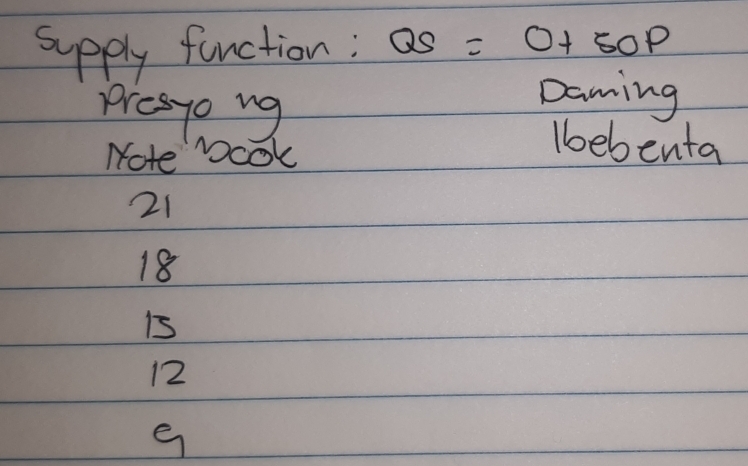 Supply function : QS = 0+ 50P
Presyo ng Daming
Notebook Ibebenta
21
18
15
12
9